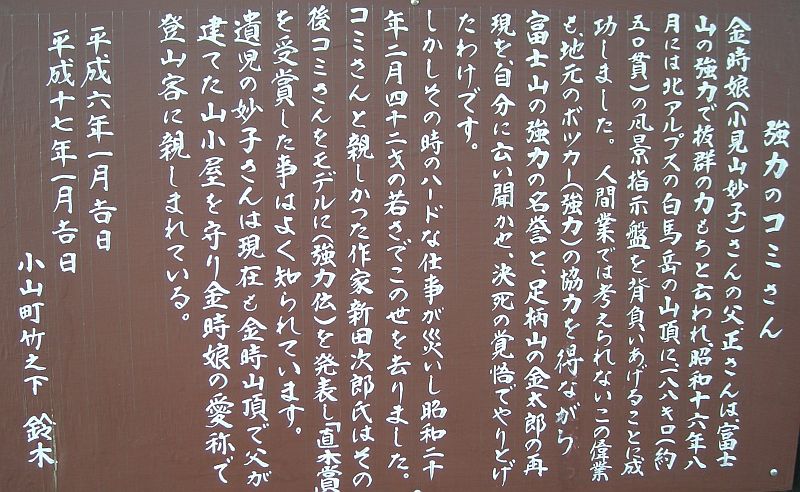 強力のコミさん
金時娘(小見山妙子)さんの父、正さんは富士
山の強力で抜群の力もちと云われ、昭和十六年八
月には北アルプスの白馬岳の山頂に、一八八キロ(約
五〇貫)の風景指示盤を背負いあげることに成
功しました。人間業では考えられないこの偉業
も、地元のボッカー(強力)の協力を得ながら
富士山の強力の名誉と、足柄山の金太郎の再
現を、自分に云い聞かせ、決死の覚悟でやりとげ
たわけです。
しかしその時のハードな仕事が災いし昭和二十
年二月四十二才の若さでこの世を去りました。
コミさんと親しかった作家新田次郎氏はその
後コミさんをモデルに(強力伝)を発表し「直木賞」
を受賞した事はよく知られています。
遺児の妙子さんは現在も金時山頂で父が
建てた山小屋を守り金時娘の愛称で
登山客に親しまれている。
平成六年一月吉日
平成十七年一月吉日
小山町竹之下 鈴木